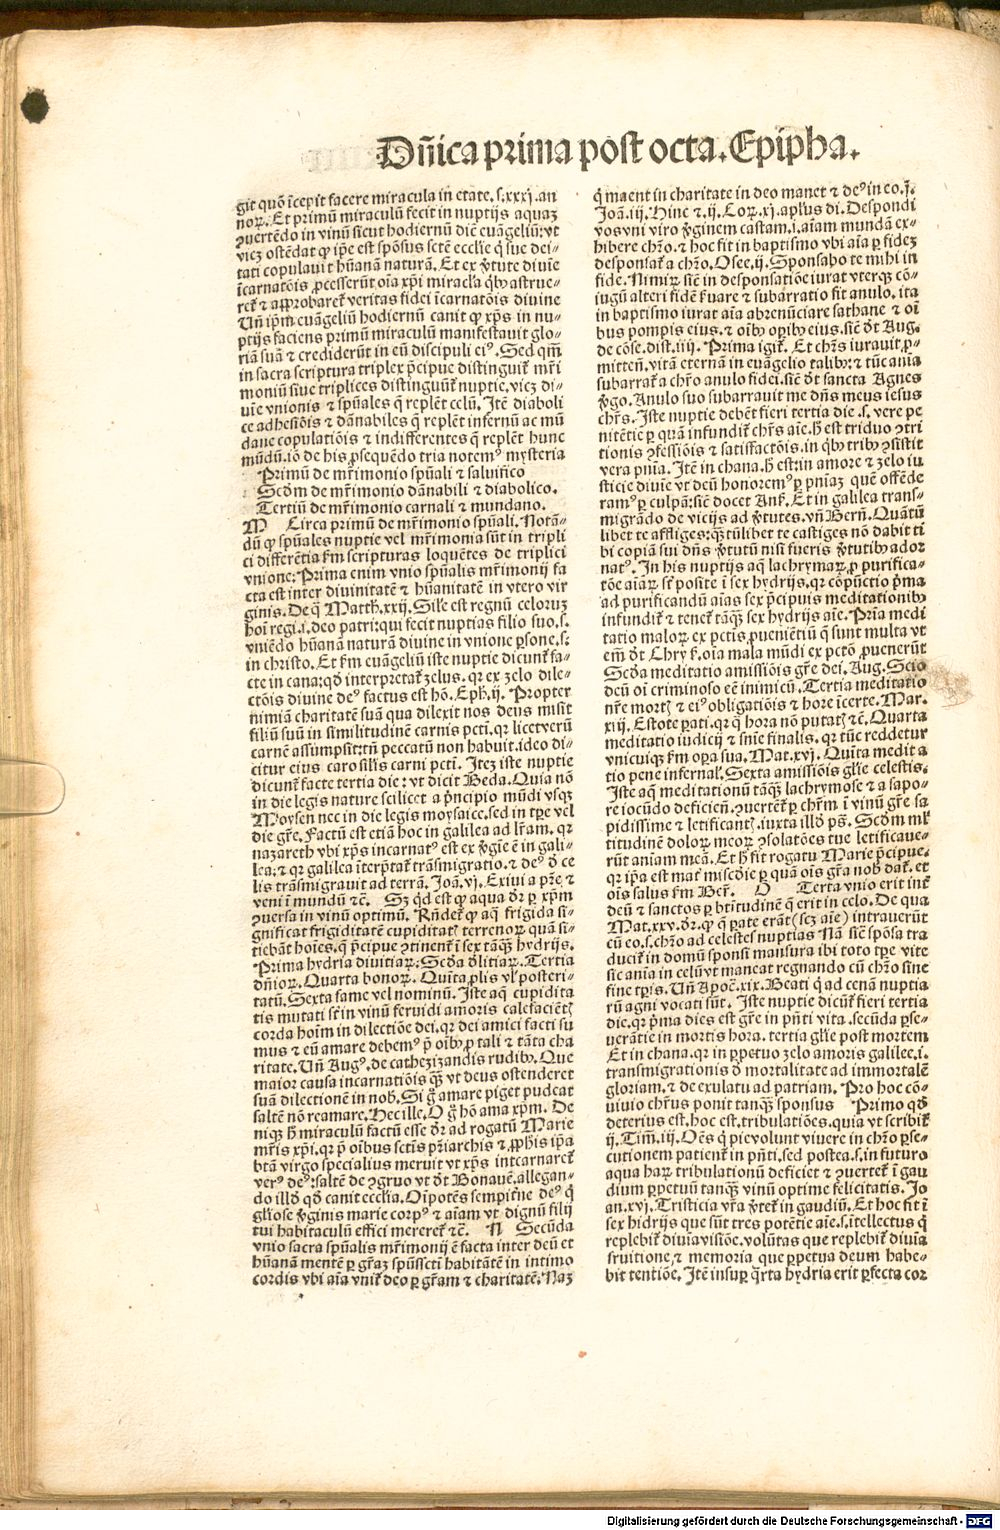 Dñica prima post octa. Epipha.
git quõ ĩcepit facere miracula in etate .s. xxxi. an
noꝝ. Et primũ miraculũ fecit in nuptijs aquaʒ
ꝯuertẽdo in vinũ sicut hodiernũ diẽ euãgeliũ: vt
viczꝫ ostẽdat ꝙ ip̃e est spõsus sctẽ eccl̃ie q̃ sue dei-
tati copulauit hũanã naturã. Et ex ṽtute diuĩe
ĩcarnatõis ꝓcesserũt oĩa xp̃i miracl̃a q̃bꝰ astrue-
ret᷑ & approbaret᷑ veritas fidei ĩcarnatõis diuine
Uñ ip̃m euãgeliũ hodiernũ canit ꝙ xp̃s in nu-
ptijs faciens primũ miraculũ manifestauit glo-
riã suã & crediderũt in eũ discipuli eiꝰ. Sed qm̃
in sacra scriptura triplex p̃cipue distinguit᷑ mr̃i
moniũ siue triplices distinguũt᷑ nuptie. viczꝫ di-
uĩe vnionis & sp̃uales q̃ replẽt celũ. Itẽ diaboli
ce adhesiõis & dãnabiles q̃ replẽt infernũ ac mũ
dane copulatiõis & indifferentes q̃ replẽt hunc
mũdũ. iõ de his ꝑsequẽdo tria notemꝰ mysteria
Primũ de mr̃imonio sp̃uali & saluifico
Scd̃m de mr̃imonio dãnabili & diabolico.
Tertiũ de mr̃imonio carnali & mundano.
M Circa primũ de mr̃imonio sp̃uali. Notã-
dũ ꝙ sp̃uales nuptie vel mr̃imonia sũt in tripli
ci differẽtia s̃m scripturas loquẽtes de triplici
vnione: Prima enim vnio sp̃ualis mr̃imonij fa
cta est inter diuinitatẽ & hũanitatẽ in vtero vir
ginis. De q̃ Matth̃. xxij. Sil̃e est regnũ celoruʒ
hoĩ regi .i. deo patri: qui fecit nuptias filio suo .s.
vniẽdo hũanã naturã diuine in vnione ꝑsone .s:
in christo. Et s̃m euãgeliũ iste nuptie dicunt᷑ fa-
cte in cana: qd̃ interpretat᷑ zelus. qꝛ ex zelo dile-
ctõis diuine deꝰ factus est hõ. Eph̃. ij. Propter
nimiã charitatẽ suã qua dilexit nos deus misit
filiũ suũ in similitudinẽ carnis pctĩ. qꝛ licet verũ
carnẽ assumpsit: tñ peccatũ non habuit. ideo di-
citur eius caro silis̃ carni pctĩ. Iteʒ iste nuptie
dicunt᷑ facte tertia die: vt dicit Beda. Quia nõ
in die legis nature scilicet a p̃ncipio mũdi vsqꝫ
Moysen nec in die legis moysaice. sed in tꝑe vel
die gr̃e. Factũ est etiã hoc in galilea ad lr̃am. qꝛ
nazareth vbi xp̃s incarnatꝰ est ex ṽgĩe ẽ in gali-
lea: & qꝛ galilea ĩterp̃tat᷑ trãsmigratio. & deꝰ d̃ ce
lis trãsmigrauit ad terrã. Joã. vj. Exiui a pr̃e &
veni ĩ mundũ &c̃. Sʒ qd̃ est ꝙ aqua dr̃ ꝑ xp̃m
ꝯuersa in vinũ optimũ. Rñdet᷑ ꝙ aq̃ frigida si-
gnificat frigiditatẽ cupiditatꝭ terrenoꝝ quã si-
tiebãt hoĩes. q̃ p̃cipue ꝯtinent᷑ ĩ sex tãqꝫ̃ hydrijs.
Prima hydria diuitiaꝝ: Scd̃a d̃litiaꝝ. Tertia
dñioꝝ. Quarta bonoꝝ. Quĩta ꝓlis vl̃ posteri-
tatũ. Sexta fame vel nominũ. Iste aq̃ cupidita
tis mutati sũt in vinũ feruidi amoris calefaciẽtꝭ
corda hoĩm in dilectiõe dei. qꝛ dei amici facti su
mus & eũ amare debemꝰ p̃ oĩbꝰ ꝓ tali & tãta cha
ritate. Uñ Augꝰ. de cathezizandis rudibꝰ. Que
maior causa incarnatiõis qꝫ̃ vt deus ostenderet
suã dilectionẽ in nob̃. Si g̃ amare piget pudeat
saltẽ nõ reamare. Hec ille. O g̃ hõ ama xp̃m. De
niqꝫ h̃ miraculũ factũ esse dr̃ ad rogatũ Marie
mr̃is xp̃i. qꝛ p̃ oĩbus sctĩs pr̃iarchis & ꝓph̃is ip̃a
btã virgo specialius meruit vt xp̃s incarnaret᷑
verꝰ deꝰ: saltẽ de ꝯgruo vt dt̃ Bonauẽ. allegan-
do illd̃ qd̃ canit eccl̃ia. Oĩpotẽs sempitr̃ne deꝰ q̃
gl̃iose ṽginis marie corpꝰ & aĩam vt dignũ filij
tui habitaculũ effici mereret᷑ &c̃. N Secũda
vnio sacra sp̃ualis mr̃imonij ẽ facta inter deũ et
hũanã mentẽ ꝑ gr̃aʒ sp̃ũssctĩ habitãtẽ in intimo
cordis vbi aĩa vnit᷑ deo ꝑ gr̃am & charitatẽ. Naʒ
q̃ maent in charitate in deo manet & deꝰ in eo. j.
Joã. iij. Hinc & .ij. Coꝝ. xj. apl̃us di. Despondi
vos vni viro ṽginem castam .i. aĩam mundã ex-
hibere chr̃o. & hoc fit in baptismo vbi aĩa ꝑ fideʒ
desponsat᷑ a chr̃o. Osee. ij. Sponsabo te mihi in
fide. Nimiꝝ sic̃ in desponsatiõe iurat vterqꝫ cõ-
iugũ alteri fidẽ s̃uare & subarratio fit anulo. ita
in baptismo iurat aĩa abrenũciare sathane & oĩ
bus pompis eius. & oĩbꝰ oꝑibꝰ eius. sic̃ dt̃ Aug.
de cõse. dist. iiij. Prima igit᷑. Et chr̃s iurauit ꝓ-
mitteñ. vitã eternã in euãgelio talibꝰ: & tũc aĩa
subarrat᷑ a chr̃o anulo fidei. sic̃ dt̃ sancta Agnes
ṽgo. Anulo suo subarrauit me dñs meus iesus
chr̃s. Iste nuptie debẽt fieri tertia die .s. vere pe
nitẽtie ꝑ quã infundit᷑ chr̃s aĩe. h̃ est triduo ꝯtri
tionis ꝯfessiõis & satisfactõis. in q̃bꝰ tribꝰ ꝯsistit
vera pñia. Itẽ in chana. h̃ est: in amore & zelo iu
sticie diuĩe vt deũ honoremꝰ ꝑ pñiaʒ quẽ offẽde
ramꝰ ꝑ culpã: sic̃ docet Ans̃. Et in galilea trans-
migrãdo de vicijs ad ṽtutes. vñ Berñ. Quãtũ
libet te affliges: qꝫ̃tũlibet te castiges nõ dabit ti
bi copiã sui dñs ṽtutũ nisi fueris ṽtutibꝰ ador
natꝰ. In his nuptijs aq̃ lachrymaꝝ ꝓ purifica-
tõe aĩaꝝ sũt posite ĩ sex hydrijs. qꝛ cõpũctio p̃ma
ad purificandũ aĩas sex p̃cipuis meditationibꝰ
infundit᷑ & tenet᷑ tãqꝫ̃ sex hydrijs aĩe. Pr̃ia medi
tatio maloꝝ ex pctĩs ꝓueniẽtiũ q̃ sunt multa vt
em̃ dt̃ Chrys̃. oĩa mala mũdi ex pctõ ꝓuenerũt
Scd̃a meditatio amissiõis gr̃e dei. Aug. Scio
deũ oĩ criminoso eẽ inimicũ. Tertia meditatio
nr̃e mortꝭ & eiꝰ obligatiõis & hore ĩcerte. Mar.
xiij. Estote ꝑati. qꝛ q̃ hora nõ putatꝭ &c̃. Quarta
meditatio iudicij & snĩe finalis. qꝛ tũc reddetur
vnicuiqꝫ s̃m oꝑa sua. Mat. xvj. Quĩta medita
tio pene infernal̃. Sexta amissiõis gl̃ie celestis.
Iste aq̃ meditationũ tãqꝫ̃ lachrymose & a sapo-
re iocũdo deficieñ. ꝯuertẽt᷑ ꝑ chr̃m ĩ vinũ gr̃e sa
pidissime & letificantꝭ. iuxta illd̃ ps̃. Scd̃m ml̃
titudinẽ doloꝝ meoꝝ ꝯsolatões tue letificaue-
rũt aniam meã. Et h̃ fit rogatu Marie p̃cipue.
qꝛ ip̃a est matꝭ misc̃die ꝑ quã oĩs gr̃a nob̃ dat᷑. et
oĩs salus s̃m Ber̃. O Tertia vnio erit int̃
deũ & sanctos ꝑ btĩtudinẽ q̃ erit in celo. De qua
Mat. xxv. dr̃. ꝙ q̃ ꝑate erãt (sczꝫ aĩe) intrauerũt
cũ eo .s. chr̃o ad celestes nuptias Nã sic̃ spõsa tra
ducit᷑ in domũ sponsi mansura ibi toto tꝑe vite
sic anĩa in celũ vt maneat regnando cũ chr̃o sine
fine tꝑis. Uñ Apoc̃. xix. Beati q̃ ad cenã nuptia
rũ agni vocati sũt. Iste nuptie dicũt᷑ fieri tertia
die. qꝛ p̃ma dies est gr̃e in pñti vita. secũda ꝑse-
uerãtie in mortis hora. tertia gl̃ie post mortem
Et in chana. qꝛ in ꝑpetuo zelo amoris galilee .i.
transmigrationis d̃ mortalitate ad immortalẽ
gloriam. & de exulatu ad patriam. Pro hoc cõ-
uiuio chr̃us ponit tanqꝫ̃ sponsus Primo qd̃
deterius est. hoc est. tribulatiões. quia vt scribit᷑
ij. Tim̃. iij. Oẽs q̃ pie volunt viuere in chr̃o ꝑse-
cutionem patient᷑ in pñti. sed postea .s. in futuro
aqua haꝝ tribulationũ deficiet & ꝯuertet᷑ ĩ gau
dium ꝑpetuũ tanqꝫ̃ vinũ optime felicitatis. Jo
an. xvj. Tristicia vr̃a ṽtet᷑ in gaudiũ. Et hoc fit ĩ
sex hidrijs que sũt tres potẽtie aĩe .s. ĩtellectus q̃
replebit᷑ diuĩa visiõe. volũtas que replebit᷑ diuĩa
fruitione. & memoria que ꝑpetua deum habe-
bit tentiõe. Itẽ insuꝑ q̃rta hydria erit ꝑfecta cor
Digitalisierung gefördert durch die Deutsche Forschungsgemeinschaft - DFG